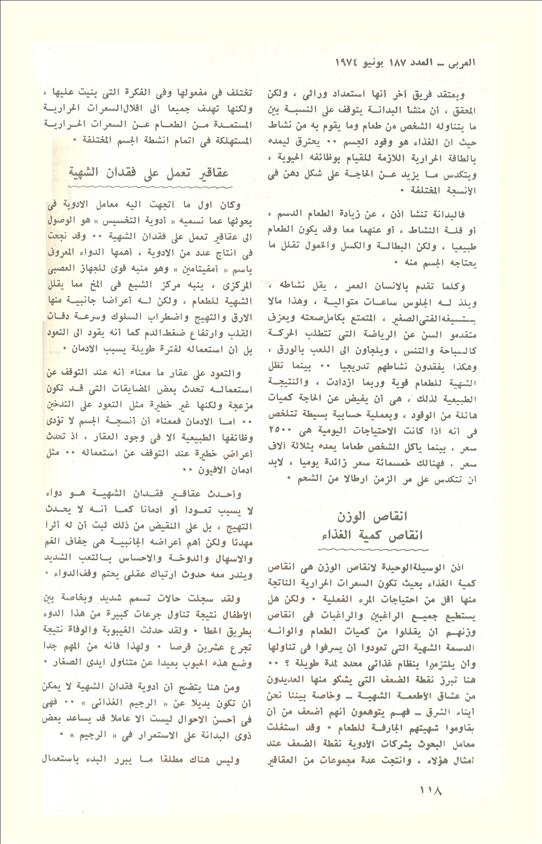 العربى – العدد ١٨٧ يونيو ١٩٧٤
ويعتقد فريق آخر أنها استعداد وراثى ، ولكن
المحقق ، أن منشأ البدانة يتوقف على النسبة بين
ما يتناوله الشخص من طعام وما يقوم به من نشاط
حيث ان الغذاء هو وقود الجسم ٠٠ يحترق ليمده
بالطاقة الحرارية اللازمة للقيام بوظائفه الحيوية ،
ويتكدس ما يزيد عن الحاجة على شكل دهن فى
الأنسجة المختلفة ٠
فالبدانة تنشا اذن ، عن زيادة الطعام الدسم ،
أو قلة النشاط ، أو عنهما معا وقد يكون الطعام
طبيعيا ، ولكن البطالة والكسل والخمول تقلل ما
يحتاجه الجسم منه ٠
وكلما تقدم بالانسان العمر ، يقل نشاطه ،
ويلذ لـه الجلوس ساعات متوالية ، وهذا مالا
يستسيغه الفتى الصغير ، المتمتع بكامل صحته ويعزف
متقدمو السن عن الرياضة التى تتطلب الحركة
كالسباحة والتنس ، ويلجاون الى اللعب بالورق ،
وهكذا يفقدون نشاطهم تدريجيا ٠٠ بينما تظل
الشهية للطعام قوية وربما ازدادت ، والنتيجة
الطبيعية لذلك ، هى أن يفيض عن الحاجة كميات
هائلة من الوقود ، وبعملية حسابية بسيطة تتلخص
فى انه اذا كانت الاحتياجات اليومية هى ٢٥٠٠
سعر . بينما يأكل الشخص طعاما يمده بثلاثة آلاف
سعر . فهنالك خمسمائة سعر زائدة يوميا ، لابد
أن تتكدس على مر الزمن ارطالا من الشحم ٠
انقاص الوزن
انقاص كمية الغذاء
اذن الوسيلة الوحيدة لانقاص الوزن هى انقاص
كمية الغذاء بحيث تكون السعرات الحرارية الناتجة
منها أقل من احتياجات المرء الفعلية ٠ ولكن هل
يستطيع جميع الراغبين والراغبات فى انقاص
وزنهم أن يقللوا من كميات الطعام والوانه
الدسمة الشهية التى تعودوا أن يسرفوا فى تناولها
وأن يلتزموا بنظام غذائى محدد لمدة طويلة ؟ ٠٠
هنا تبرز نقطة الضعف التى يشكو منها العديدون
من عشاق الأطعمة الشهية – وخاصة بيننا نحن
أبناء الشرق – فهم يتوهمون أنهم أضعف من أن
يقاوموا شهيتهم الجارفة للطعام ٠ وقد استغلت
معامل البحوث بشركات الأدوية نقطة الضعف عند
أمثال هؤلاء ، وانتجت عدة مجموعات من العقاقير
تختلف فى مفعولها وفى الفكرة التى بنيت عليها ،
ولكنها تهدف جميعا الى اقلال السعرات الحرارية
المستمدة من الطعام عن السعرات الحرارية
المستهلكة فى اتمام انشطة الجسم المختلفة ٠
عقاقير تعمل على فقدان الشهية
وكان اول ما اتجهت اليه معامل الادوية فى
بحوثها عما نسميه « أدوية التخسيس » هو الوصول
الى عقاقير تعمل على فقدان الشهية ٠٠ وقد نجحت
فى انتاج عدد من الادوية ، أهمها الدواء المعروف
باسم « أمفيتامين » وهو منبه قوى للجهاز العصبى
المركزى ، ينبه مركز الشبع فى المخ مما يقلل
الشهية للطعام ، ولكن لـه أعراضا جانبية منها
الارق والتهيج واضطراب السلوك وسرعة دقات
القلب وارتفاع ضغط الدم كما أنه يقود الى التعود
بل أن استعماله لفترة طويلة يسبب الادمان ٠
والتعود على عقار ما معناه انه عند التوقف عن
استعماله تحدث بعض المضايقات التى قد تكون
مزعجة ولكنها غير خطيرة مثل التعود على التدخين
٠٠ اما الادمان فمعناه أن أنسجة الجسم لا تؤدى
وظائفها الطبيعية الا فى وجود العقار ، اذ تحدث
أعراض خطيرة عند التوقف عن استعماله ٠٠ مثل
ادمان الافيون ٠٠
وأحدث عقاقير فقدان الشهية هو دواء
لا يسبب تعودا أو ادمانا كما أنه لا يحدث
التهيج ، بل على النقيض من ذلك ثبت أن له أثرا
مهدئا ولكن أهم أعراضه الجانبية هى جفاف الفم
والاسهال والدوخة والاحساس بالتعب الشديد
ويندر معه حدوث ارتباك عقلى يحتم وقف الدواء ٠
ولقد سجلت حالات تسمم شديد وبخاصة بين
الأطفال نتيجة تناول جرعات كبيرة من هذا الدوء
بطريق الخطا ٠ ولقد حدثت الغيبوبة والوفاة نتيجة
تجرع عشرين قرصا ٠ ولهذا فانه من المهم جدا
وضع هذه الحبوب بعيدا عن متناول أيدى الصغار ٠
ومن هنا يتضح أن أدوية فقدان الشهية لا يمكن
أن تكون بديلا عن « الرجيم الغذائى » ٠٠ فهى
فى أحسن الاحوال ليست الا عاملا قد يساعد بعض
ذوى البدانة على الاستمرار فى « الرجيم » ٠
وليس هناك مطلقا ما يبرر البدء باستعمال
١١٨